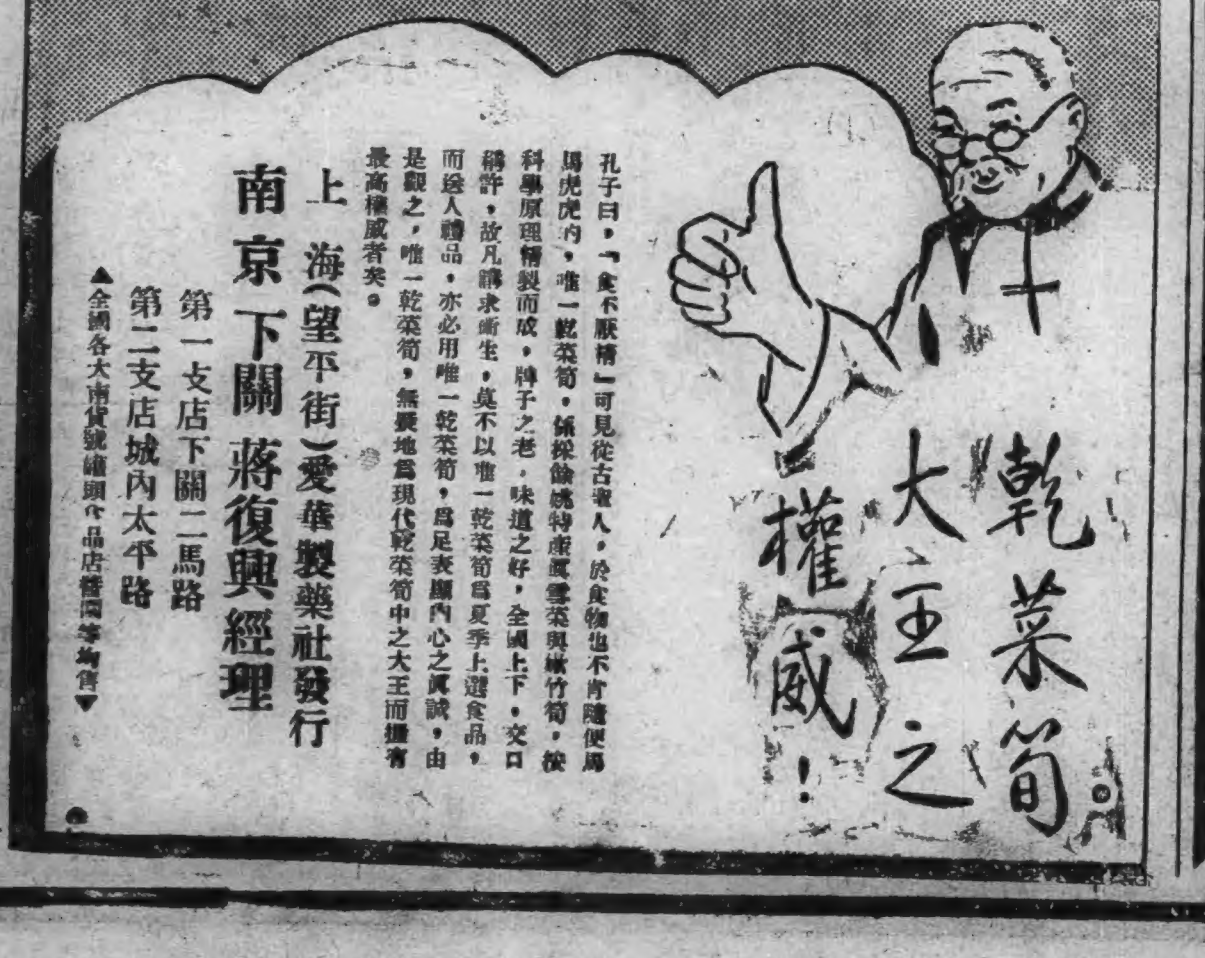 乾菜筍
大王之
權威！
孔子曰，「食不厭精」可見從古聖人，於食物也不肯隨便馬
馬虎虎的，唯一乾菜筍，係採餘姚特產眞雪菜與嫩竹筍，按
科學原理精製而成，牌子之老，味道之好，全國上下，交口
稱許，故凡講求衛生，莫不以唯一乾菜筍爲夏季上選食品，
而送人禮品，亦必用唯一乾菜筍，爲足表顯內心之眞誠，由
是觀之，唯一乾菜筍，無疑地爲現代乾菜筍中之大王而擁有
最高權威者矣。
上海(望平街)愛華製藥社發行
南京下關蔣復興經理
第一支店下關二馬路
第二支店城內太平路
▲全國各大南貨號罐頭食品店醬園等均售▼